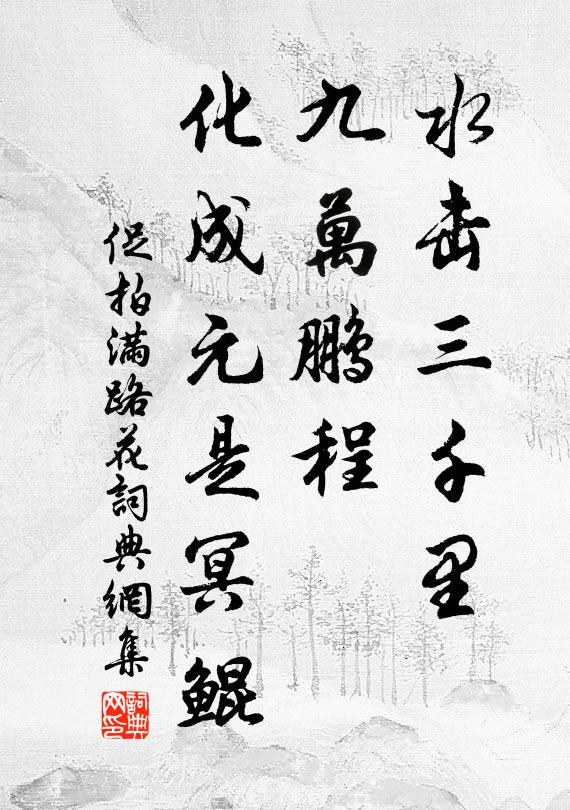 水击三千里
九萬鹏程
化成元是冥鲲
促拍满路花詞典網集
詞典
网印